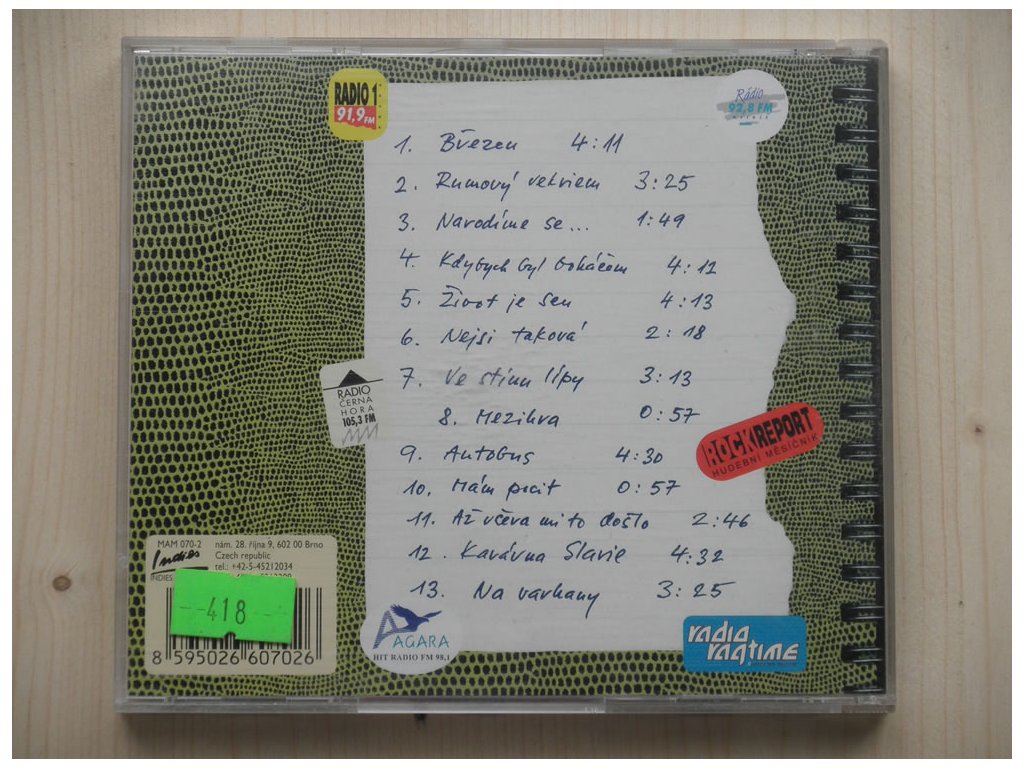 RADIO 1
91,9 FM
Rádio
92,8 FM
1. Březen 4:11
2. Rumový rekviem 3:25
3. Narodíme se... 1:49
4. Kdybych byl boháčem 4:12
5. Život je sen 4:13
6. Nejsi taková 2:18
7. Ve stínu lípy 3:13
8. Mezihra 0:57
9. Autobus 4:30
10. Mám pocit 0:57
11. Až včera mi to došlo 2:46
12. Kavárna Slavie 4:32
13. Na varhany 3:25
RADIO
ČERNÁ
HORA
105,3 FM
ROCKREPORT
HUDEBNÍ MĚSÍČNÍK
MAM 070-2
Indies
INDIES
nám. 28. října 9, 602 00 Brno
Czech republic
tel.: +42-5-45212034
418
8 595026 607026
AGARA
HIT RADIO FM 98,1
radio
ragtime